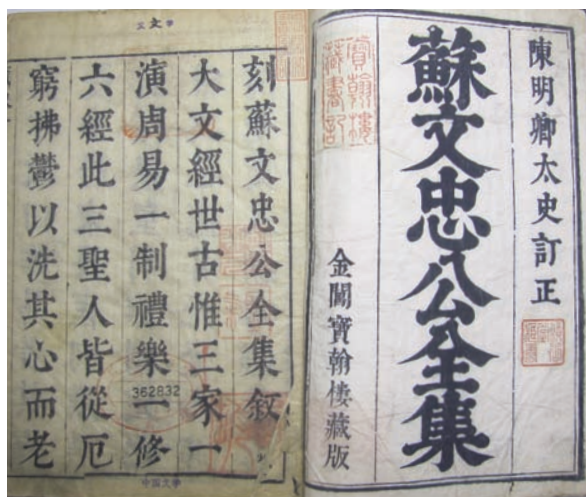 陳明卿太史訂正
蘇文忠公全集
金閶寶翰樓藏版
寶翰樓
藏書記
刻蘇文忠公全集叙
大文經世古惟三家一
演周易一制禮樂一修
六經此三聖人皆從厄
窮拂鬱以洗其心而老
362832